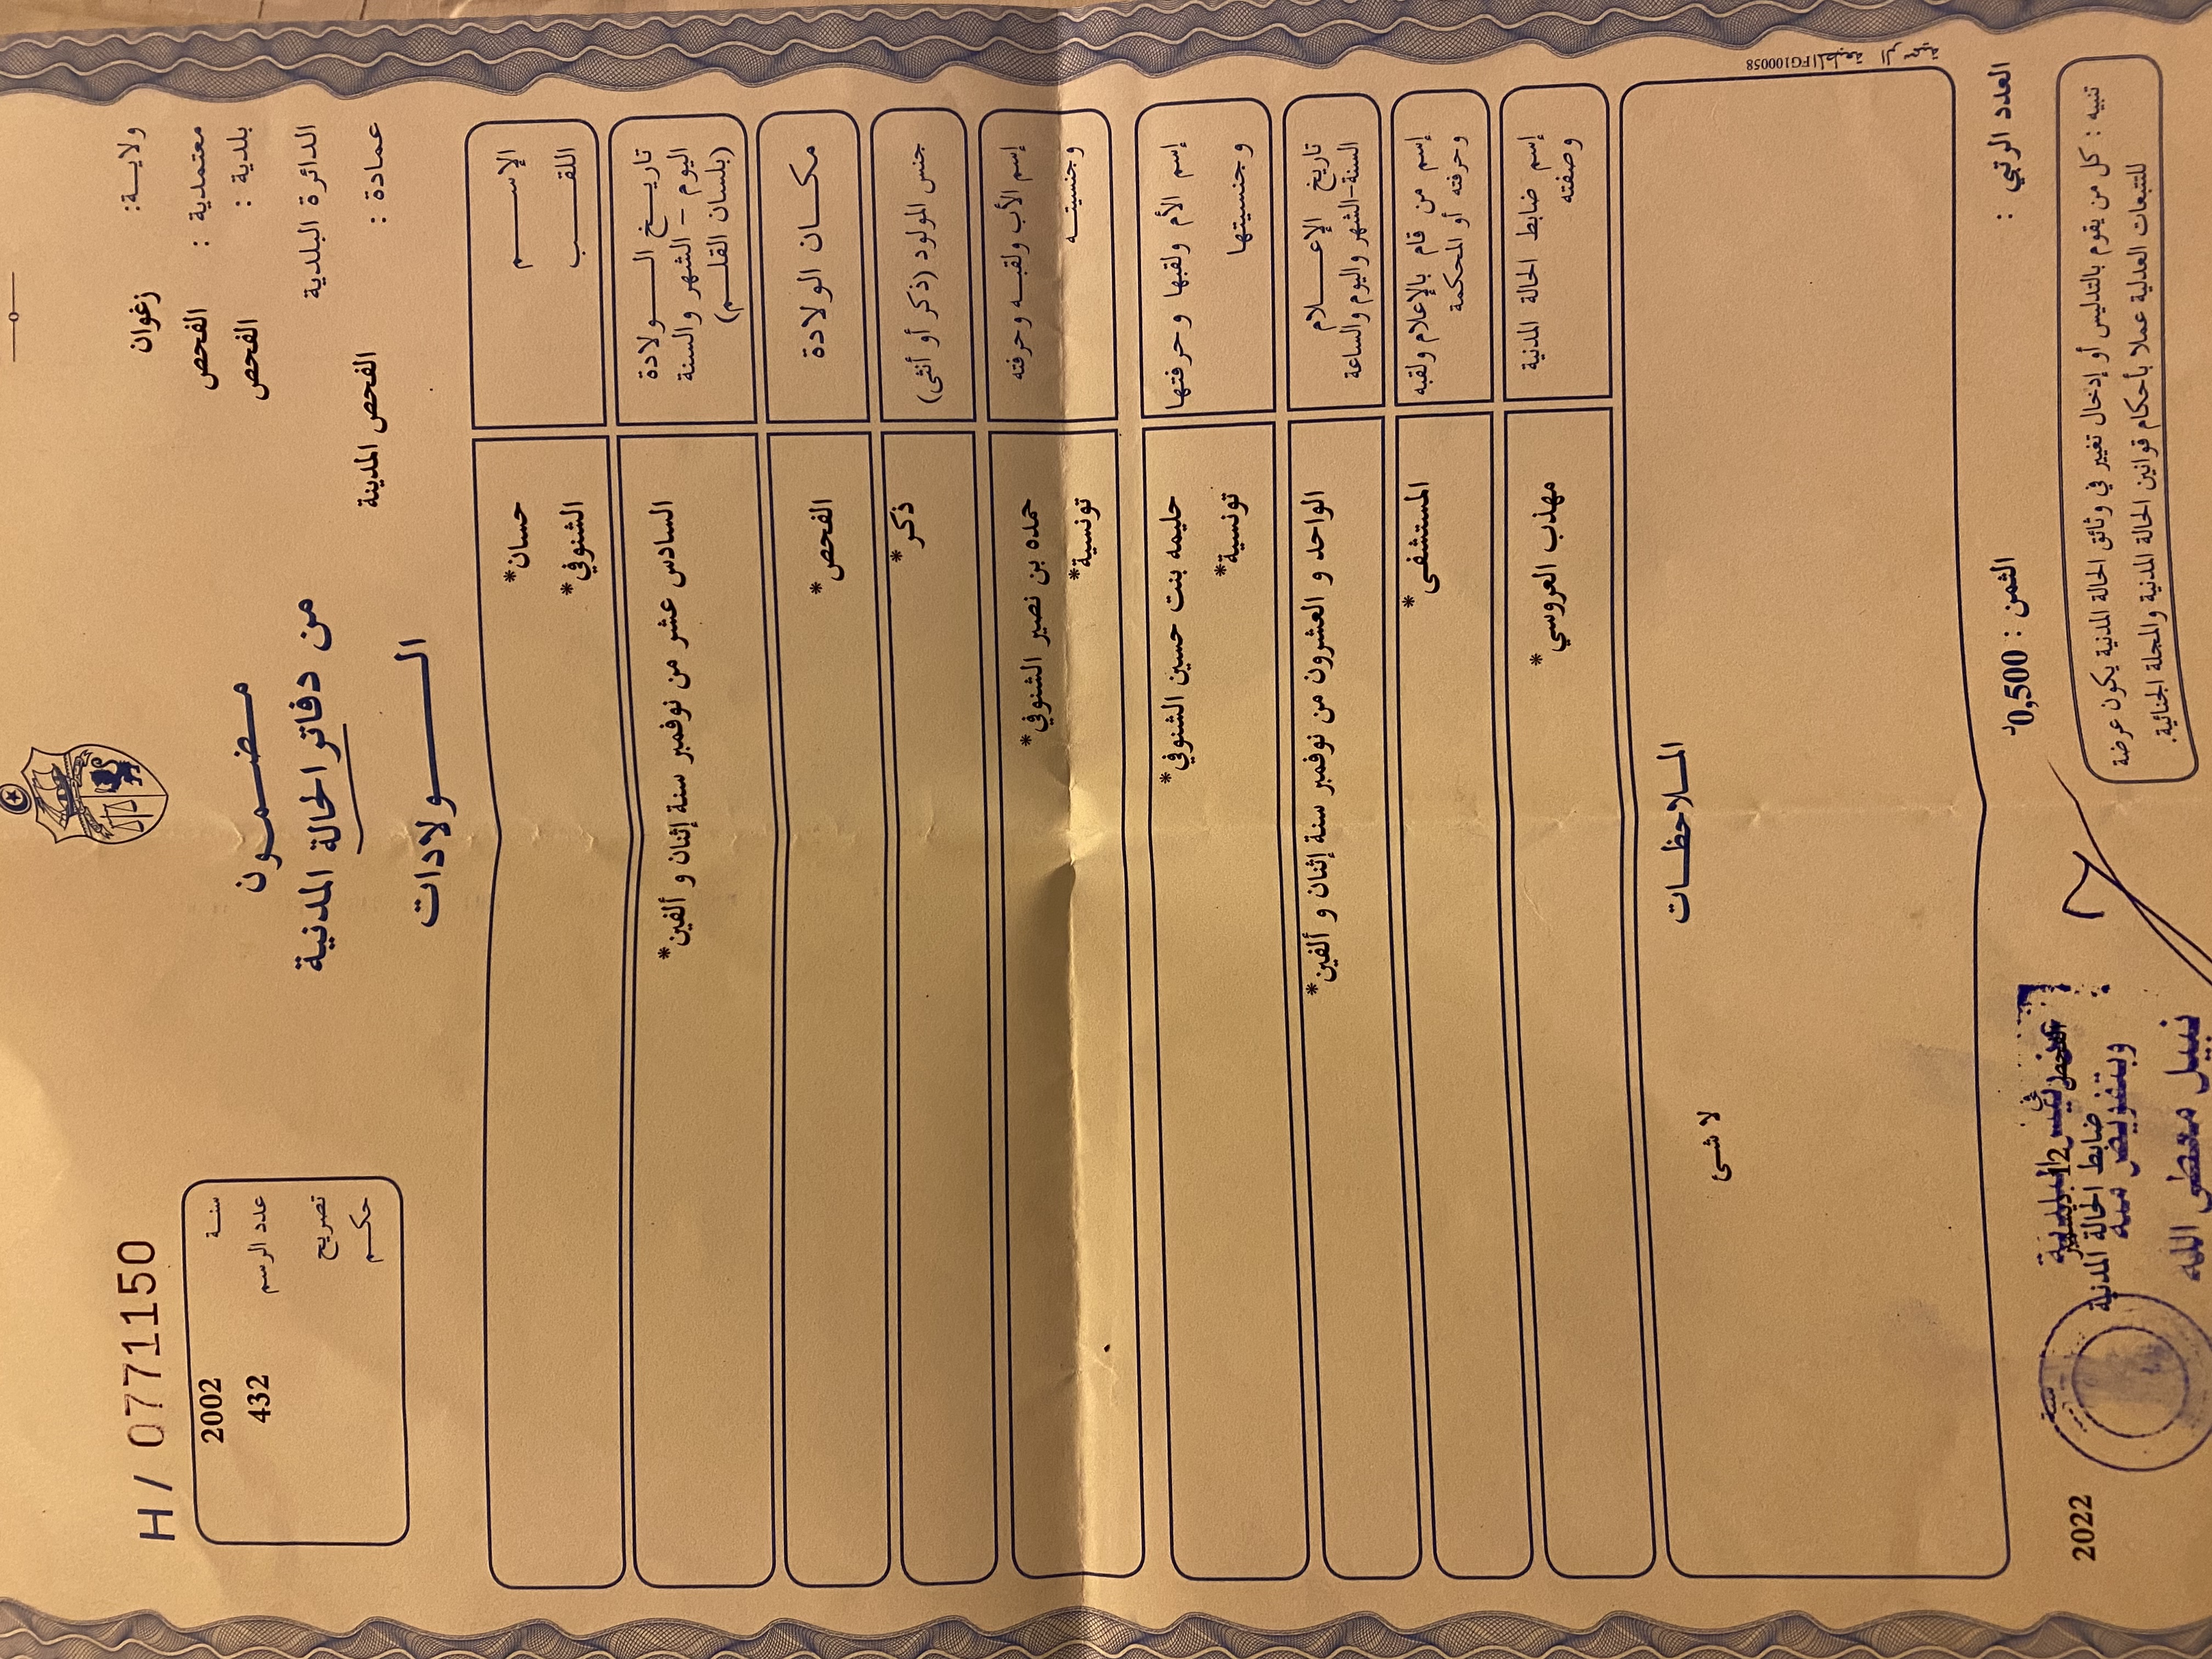 H / 0771150
ولايــة: زغوان
معتمدية : الفحص
بلدية : الفحص
الدائرة البلدية
الفحص المدينة
عمادة :
مضـمـون
من دفاتر الحالة المدنية
الــولادات
سنـة 2002
عدد الرسم 432
تصريح
حكـم
الإســـم حسان*
اللقـــب الشنوفي*
تاريــخ الــولادة السادس عشر من نوفمبر سنة إثنان و ألفين*
اليوم - الشهر والسنة
(بلسان القلـــم)
مكــان الولادة الفحص*
جنس المولود (ذكر أو أنثى) ذكر*
إسم الأب ولقبـه وحرفته حمده بن نصير الشنوفي*
وجنسيتــه تونسية*
إسم الأم ولقبها وحرفتها حليمه بنت حسين الشنوفي*
وجنسيتها تونسية*
تاريخ الإعــلام الواحد و العشرون من نوفمبر سنة إثنان و ألفين*
السنة-الشهر واليوم والساعة
إسم من قام بالإعلام ولقبه المستشفى*
وحرفته أو المحكمة
إسم ضابط الحالة المدنية مهذب العروسي*
وصفته
الملاحظــات
لا شئ
المطبعة الرسمية FG100058
العدد الرتبي :
الثمن : 0,500د
تنبيه : كل من يقوم بالتدليس أو إدخال تغيير في وثائق الحالة المدنية يكون عرضة
للتتبعات العدلية عملا بأحكام قوانين الحالة المدنية والمجلة الجنائية.
الفحص في 12 ديسمبر 2022
ضابط الحالة المدنية
عن رئيس البلدية
وبتفويض منه
نبيل معطى الله